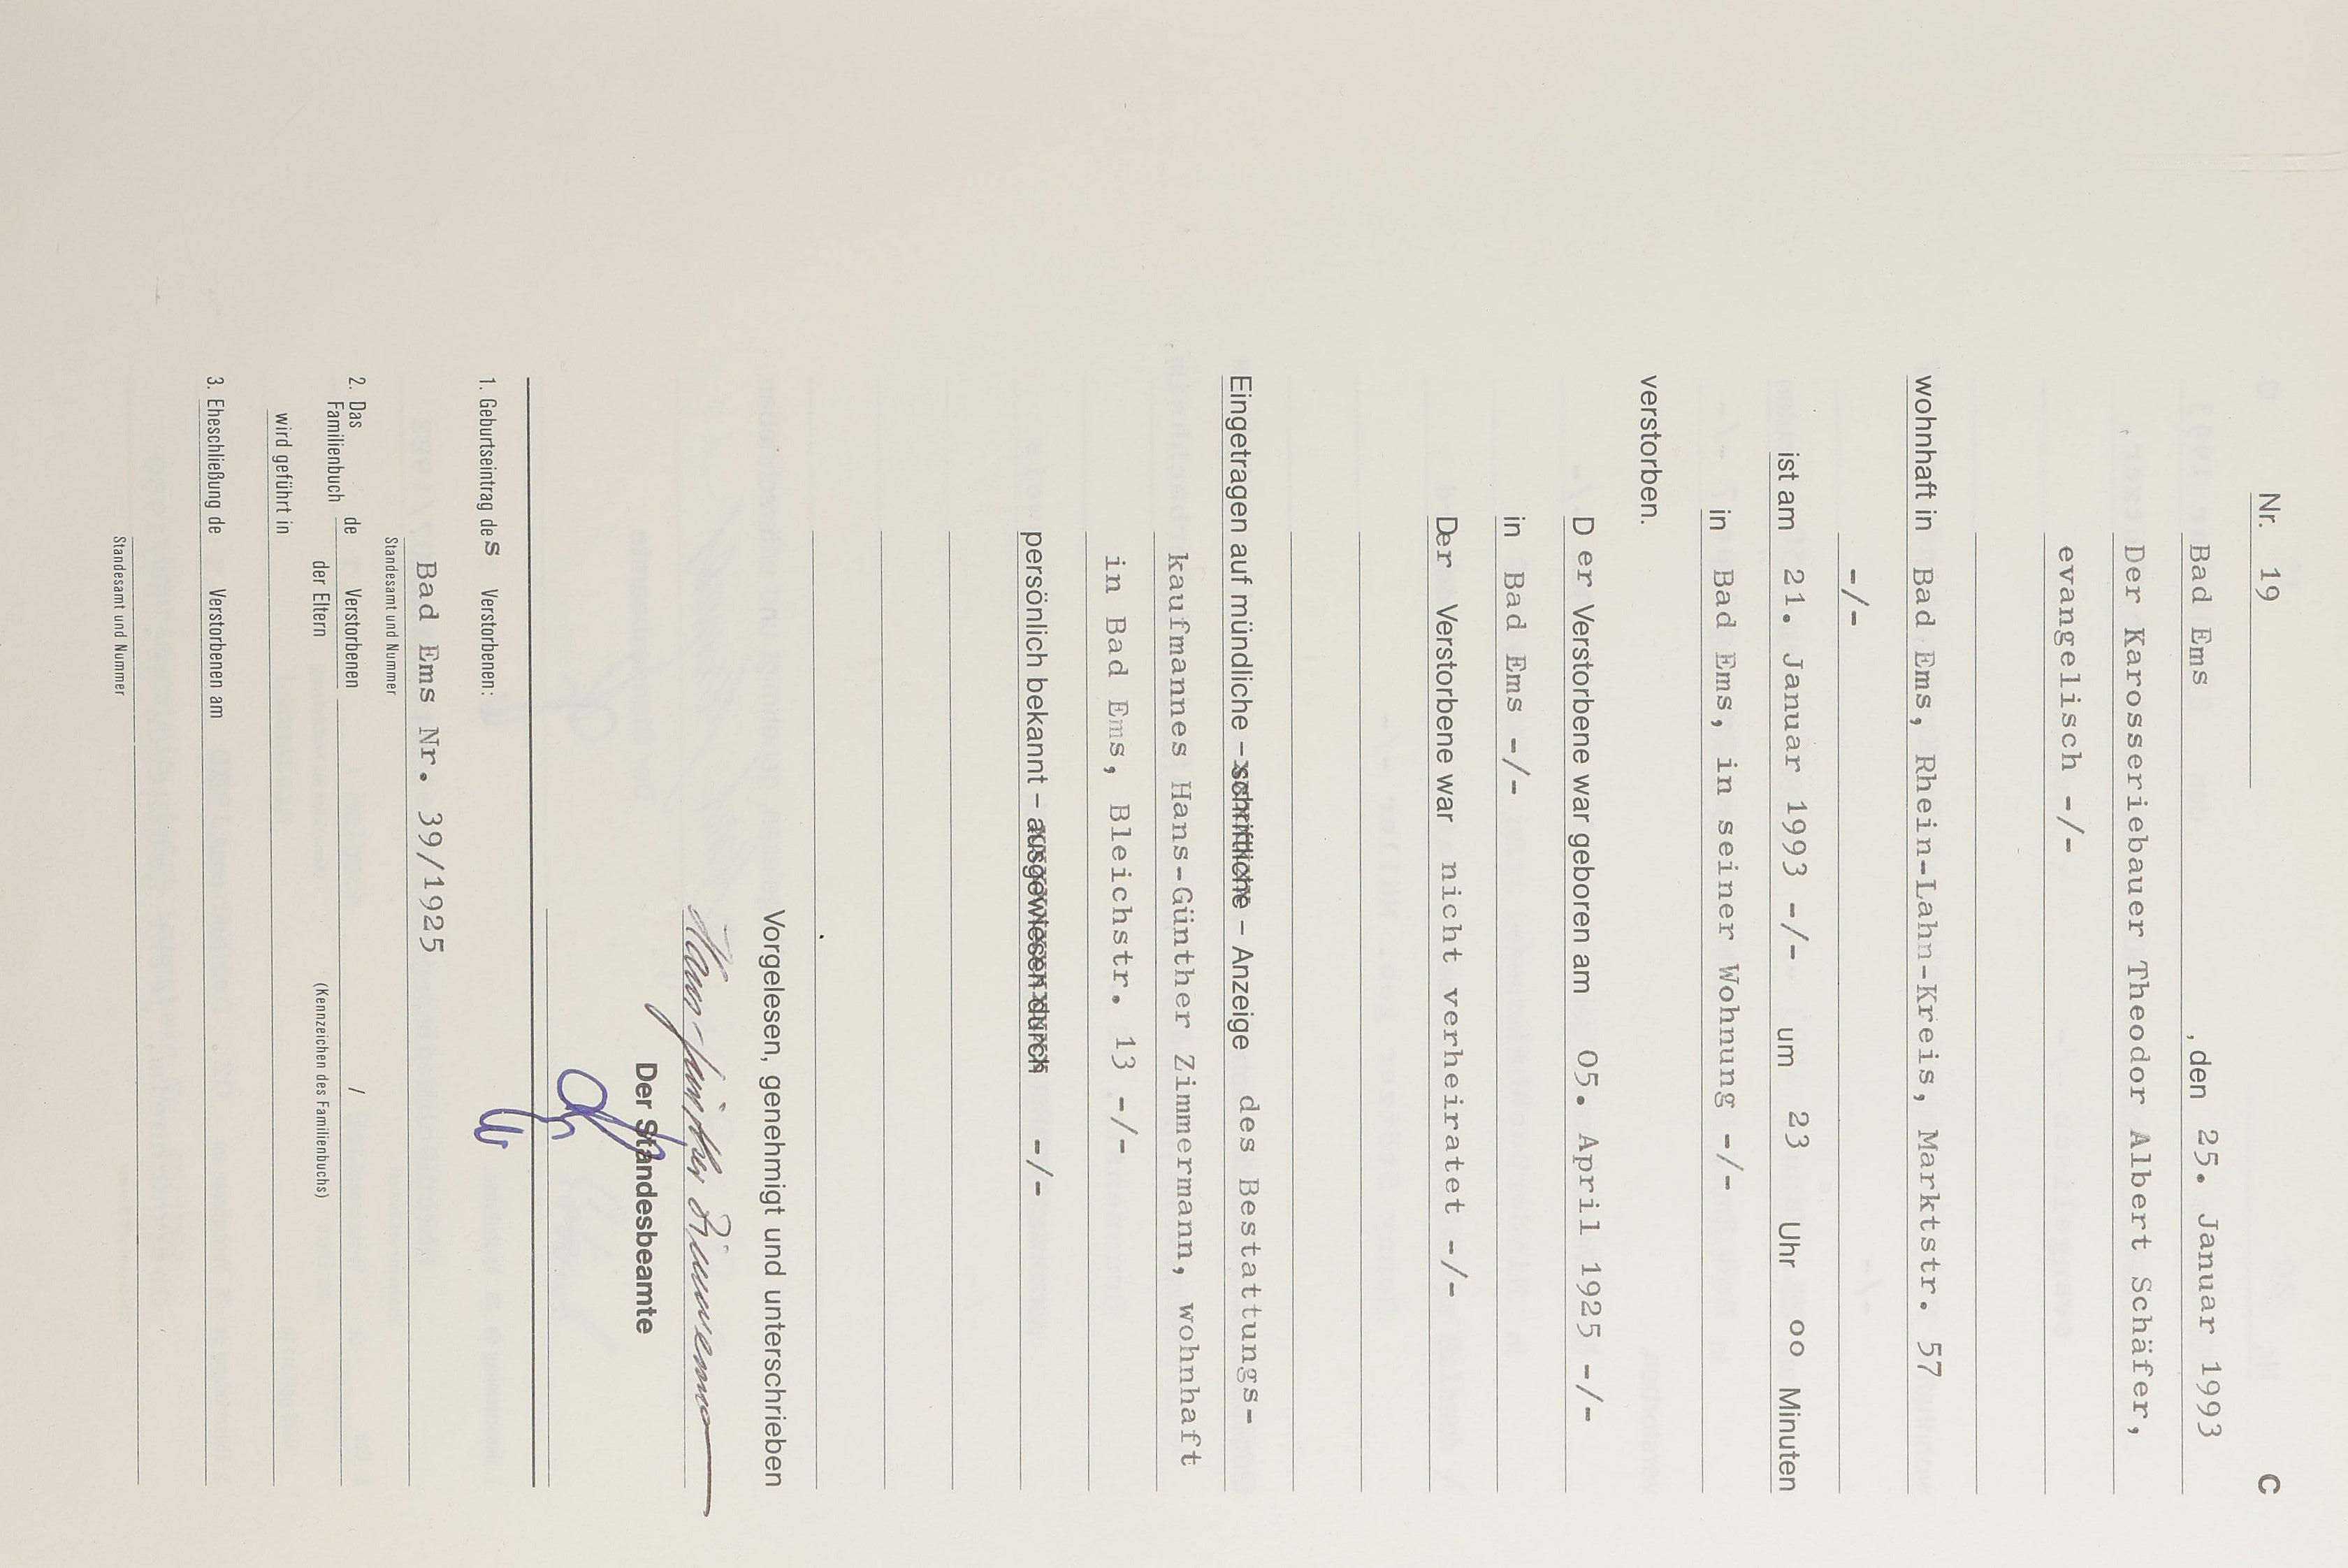 Nr. 19 C
Bad Ems , den 25. Januar 1993
Der Karosseriebauer Theodor Albert Schäfer,
evangelisch -/-
wohnhaft in Bad Ems, Rhein-Lahn-Kreis, Marktstr. 57
-/-
ist am 21. Januar 1993 -/- um 23 Uhr oo Minuten
in Bad Ems, in seiner Wohnung -/-
verstorben.
D er Verstorbene war geboren am 05. April 1925 -/-
in Bad Ems -/-
Der Verstorbene war nicht verheiratet -/-
Eingetragen auf mündliche – schriftliche – Anzeige des Bestattungs-
kaufmannes Hans-Günther Zimmermann, wohnhaft
in Bad Ems, Bleichstr. 13 -/-
persönlich bekannt – ausgewiesen durch -/-
Vorgelesen, genehmigt und unterschrieben
Hans-Günther Zimmermann
Der Standesbeamte
1. Geburtseintrag des Verstorbenen:
Bad Ems Nr. 39/1925
Standesamt und Nummer
2. Das Familienbuch de Verstorbenen /
der Eltern (Kennzeichen des Familienbuchs)
wird geführt in
3. Eheschließung de Verstorbenen am
Standesamt und Nummer